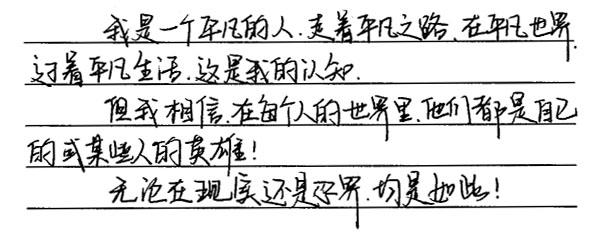 我是一个平凡的人.走着平凡之路.在平凡世界.
过着平凡生活.这是我的认知.
但我相信.在每个人的世界里.他们都是自己
的或某些人的英雄!
无论在现实还是汖界.均是如此!